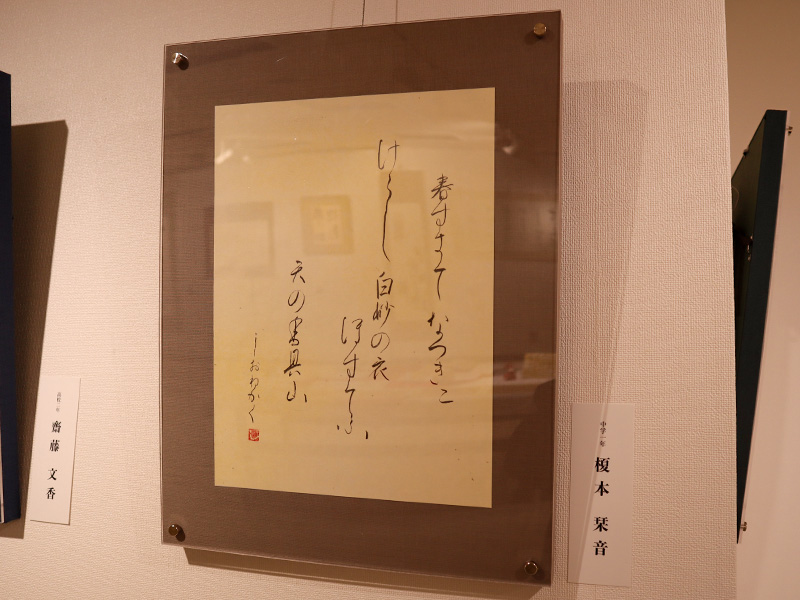 春すきて なつきに
けらし 白妙の衣
ほすてふ
天の香具山
しおねかく
中学一年
榎本 栞音
齋藤 文香